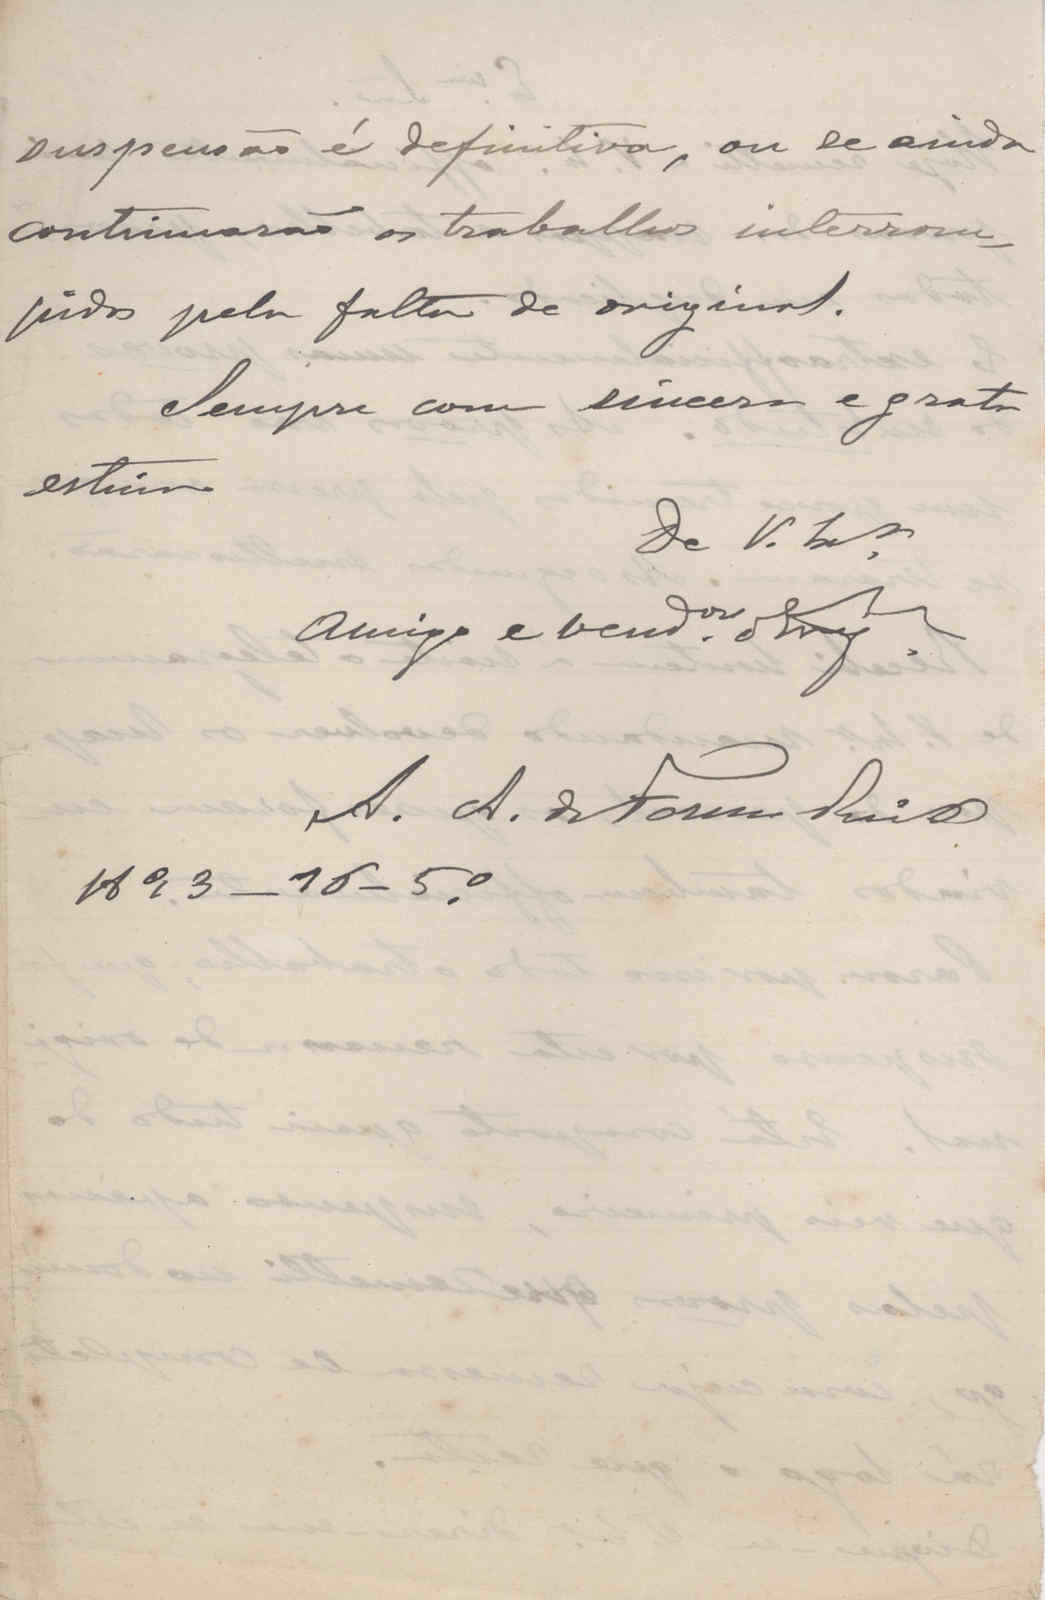 suspensão é definitiva, ou se ainda
continuarão os trabalhos interrom-
pidos pela falta de original.
Sempre com sincera e grata
estima
De V. Exª.
Amigo e vend.or obrg.
A. A. da
1893 — 16 — 5.º